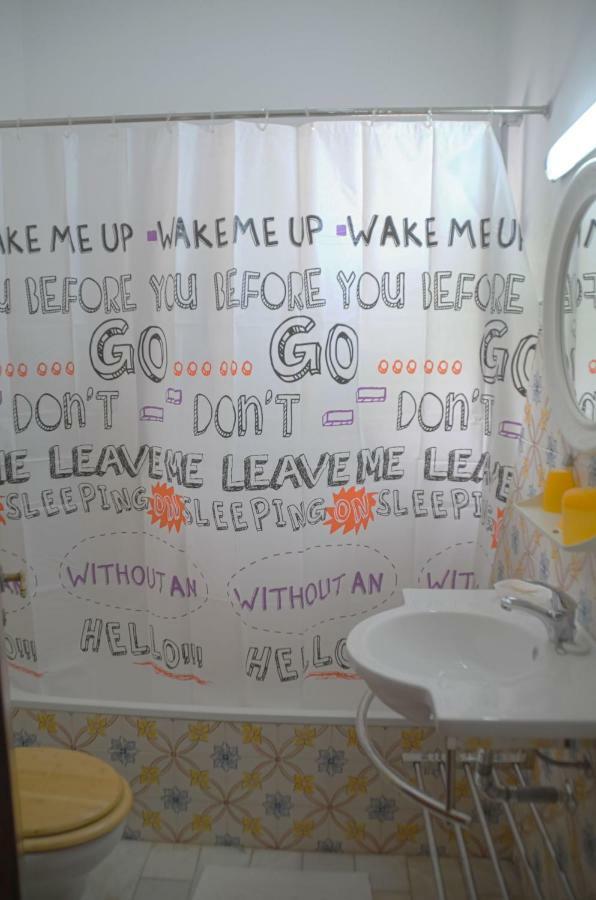 AKE ME UP WAKE ME UP WAKE ME UP
U BEFORE YOU BEFORE YOU BEFORE
GO GO GO
DON'T DON'T DON'T
ME LEAVE ME LEAVE ME LEAVE
SLEEPING ON SLEEPING ON SLEEPI
WITHOUT AN WITHOUT AN WIT
LO!!! HELLO!!! HELLO